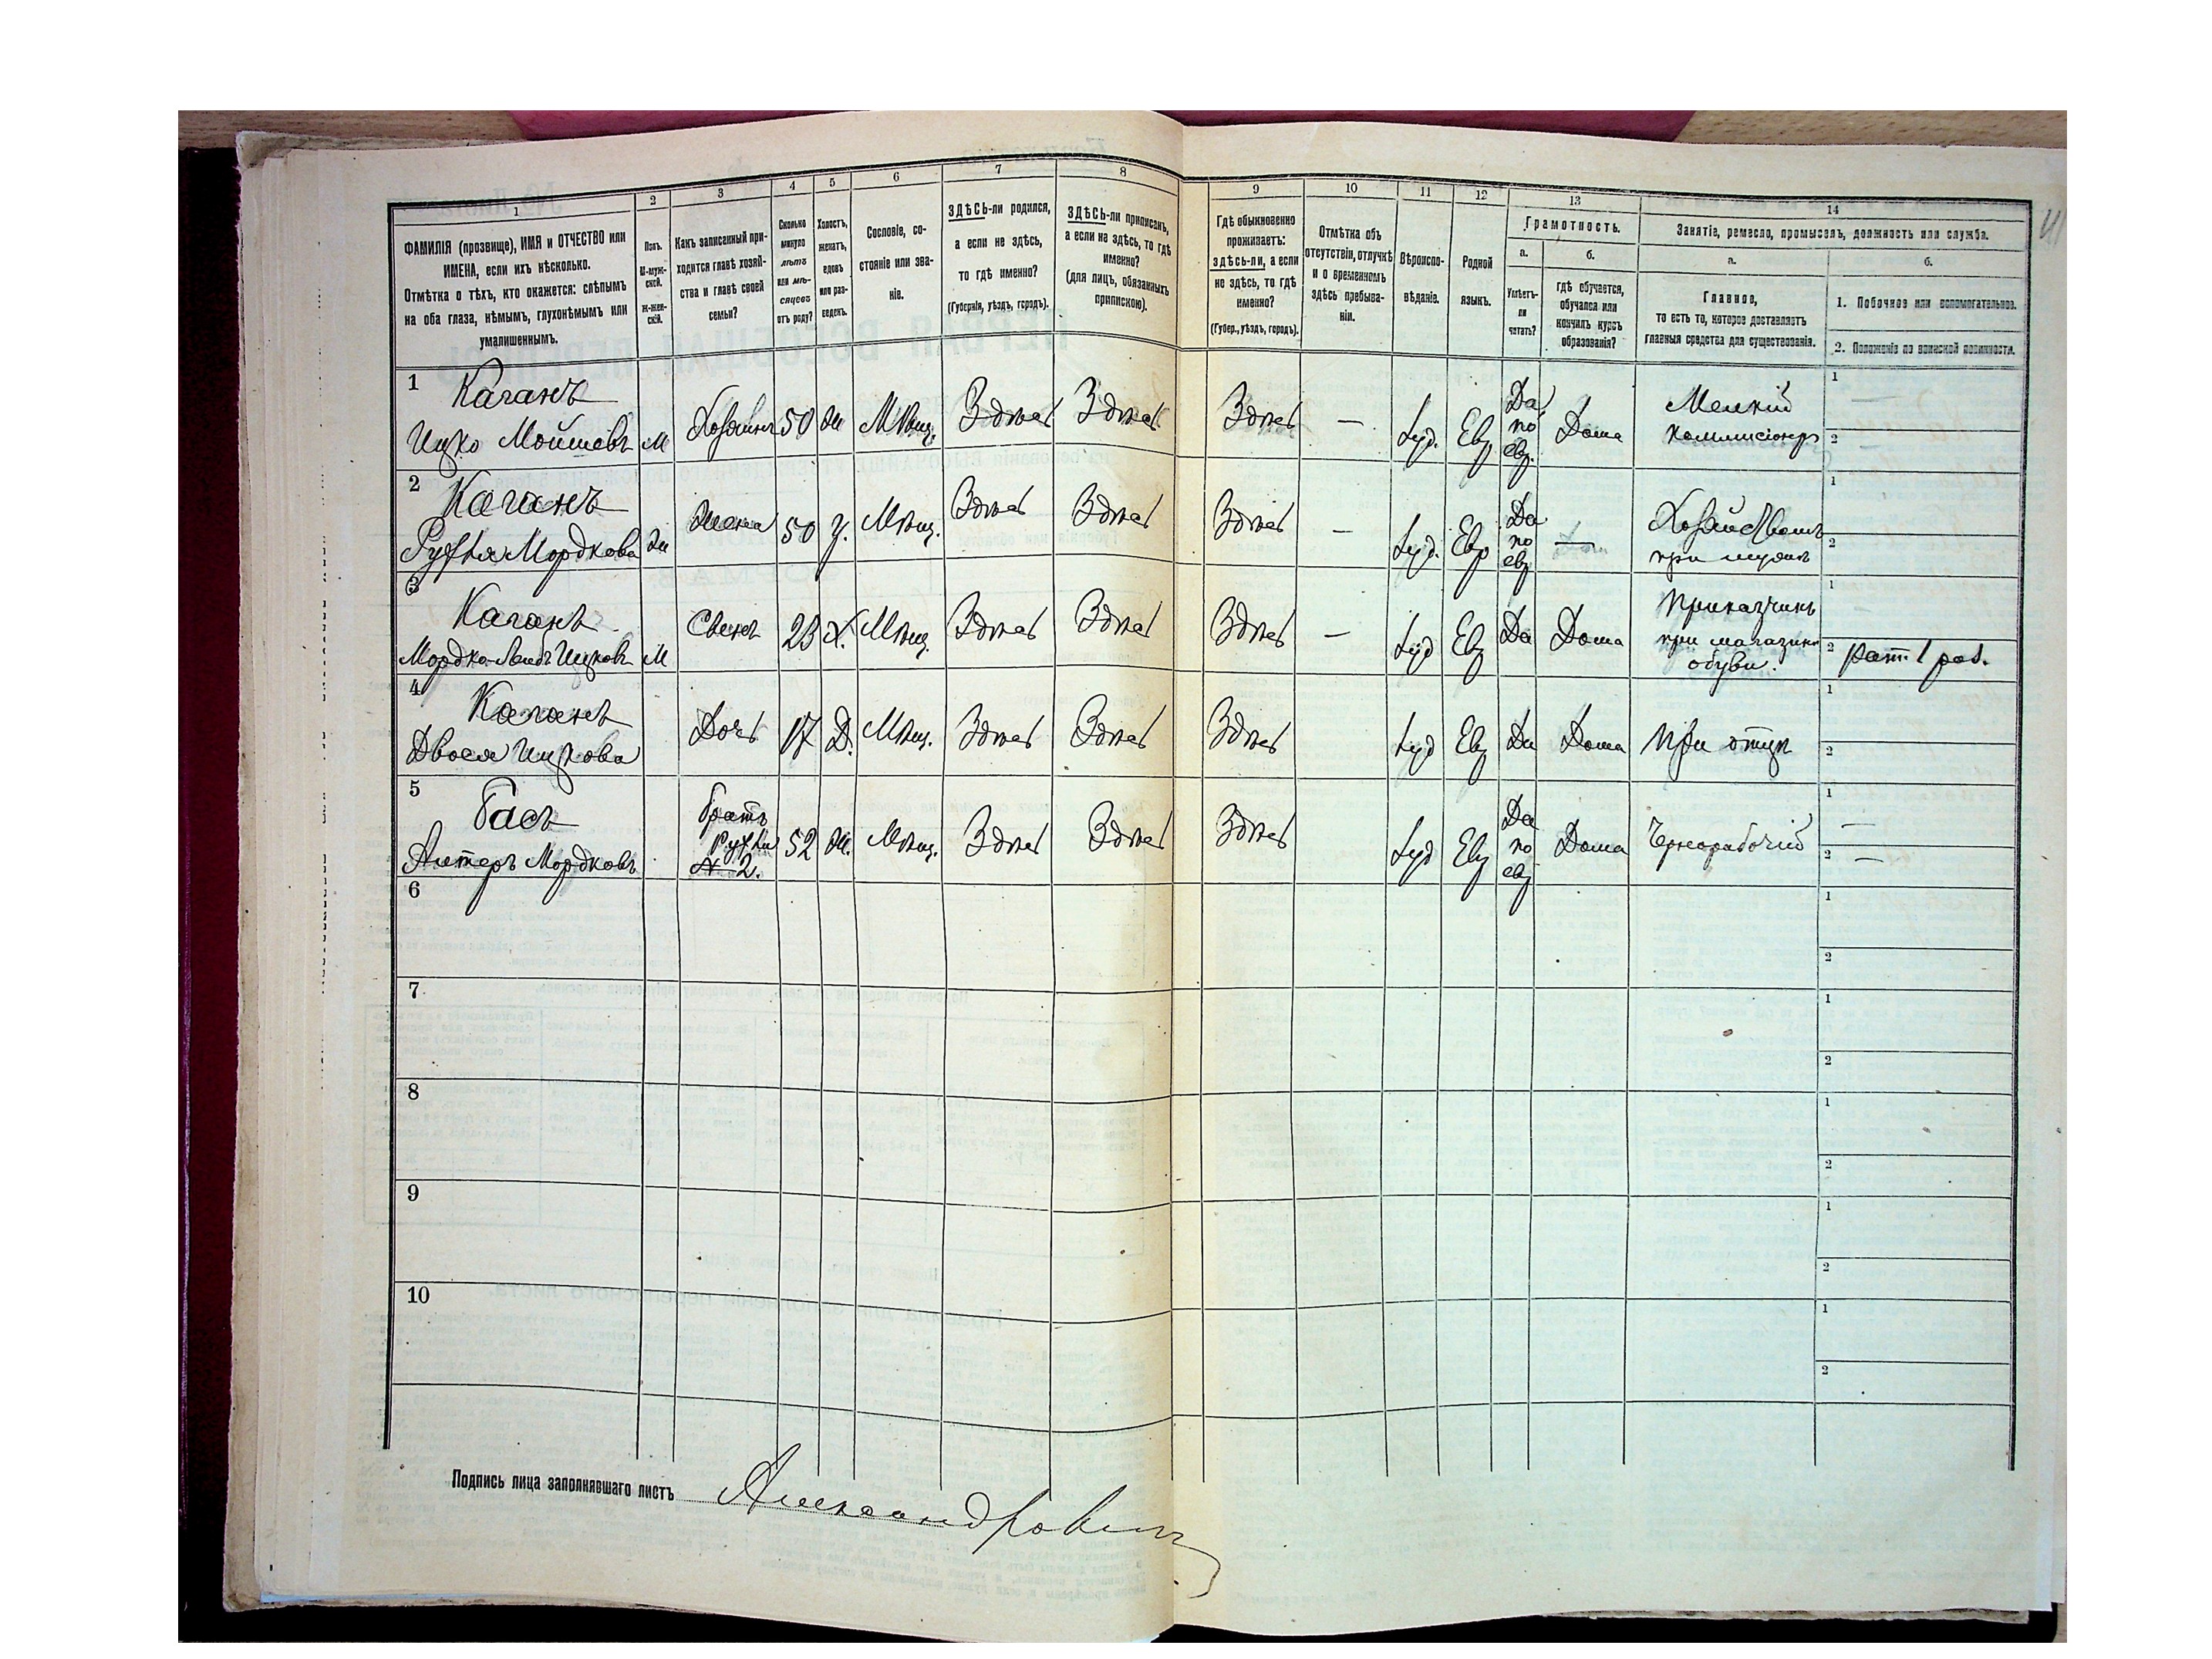 1
2
3
4
5
6
7
8
ФАМИЛІЯ (прозвище), ИМЯ и ОТЧЕСТВО или
ИМЕНА, если ихъ нѣсколько.
Отмѣтка о тѣхъ, кто окажется: слѣпымъ
на оба глаза, нѣмымъ, глухонѣмымъ или
умалишеннымъ.
Полъ.
М-муж-
ской.
Ж-жен-
скій.
Какъ записанный при-
ходится главѣ хозяй-
ства и главѣ своей
семьи?
Сколько
минуло
лѣтъ
или мѣ-
сяцевъ
отъ роду?
Холостъ,
женатъ,
вдовъ
или раз-
веденъ.
Сословіе, со-
стояніе или зва-
ніе.
ЗДѢСЬ-ли родился,
а если не здѣсь,
то гдѣ именно?
(Губернія, уѣздъ, городъ).
ЗДѢСЬ-ли приписанъ,
а если не здѣсь, то гдѣ
именно?
(для лицъ, обязанныхъ
припискою).
9
10
11
12
13
14
Гдѣ обыкновенно
проживаетъ:
здѣсь-ли, а если
не здѣсь, то гдѣ
именно?
(Губер., уѣздъ, городъ).
Отмѣтка объ
отсутствіи, отлучкѣ
и о временномъ
здѣсь пребыва-
ніи.
Вѣроиспо-
вѣданіе.
Родной
языкъ.
Грамотность.
а.
б.
Умѣетъ-
ли
читать?
гдѣ обучается,
обучался или
кончилъ курсъ
образованія?
Занятіе, ремесло, промыселъ, должность или служба.
а.
б.
Главное,
то есть то, которое доставляетъ
главныя средства для существованія.
1. Побочное или вспомогательное.
2. Положеніе по воинской повинности.
41
1 Каганъ
Ицко Мойшевъ М Хозяинъ 50 Ж Мѣщ. Здѣсь Здѣсь Здѣсь — Іуд. Евр Да по евр. Дома Мелкій
коммисіонеръ
1 —
2
2 Каганъ
Рухля Мордкова Ж Жена 50 З. Мѣщ. Здѣсь Здѣсь Здѣсь — Іуд. Евр Да по евр — Хозяйства
при мужѣ
1
2
3 Каганъ
Мордко-Лейбъ Ицковъ М Сынъ 23 Х. Мѣщ. Здѣсь Здѣсь Здѣсь — Іуд Евр Да Дома Приказчикъ
при магазинѣ
обуви.
1
2 рат. 1 раз.
4 Каганъ
Двося Ицкова Дочь 17 Д. Мѣщ. Здѣсь Здѣсь Здѣсь Іуд Евр Да Дома При отцѣ
1
2
5 Басъ
Алтеръ Мордковъ Братъ
Рухли
№ 2. 52 Ж. Мѣщ. Здѣсь Здѣсь Здѣсь Іуд Евр Да по евр Дома Чернорабочій
1 —
2 —
6
1
2
7
1
2
8
1
2
9
1
2
10
1
2
Подпись лица заполнявшаго листъ Александровичъ